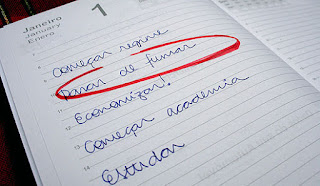 Janeiro
January
Enero
1
Começar regime
Parar de fumar
Economizar!
Começar academia
Estudar